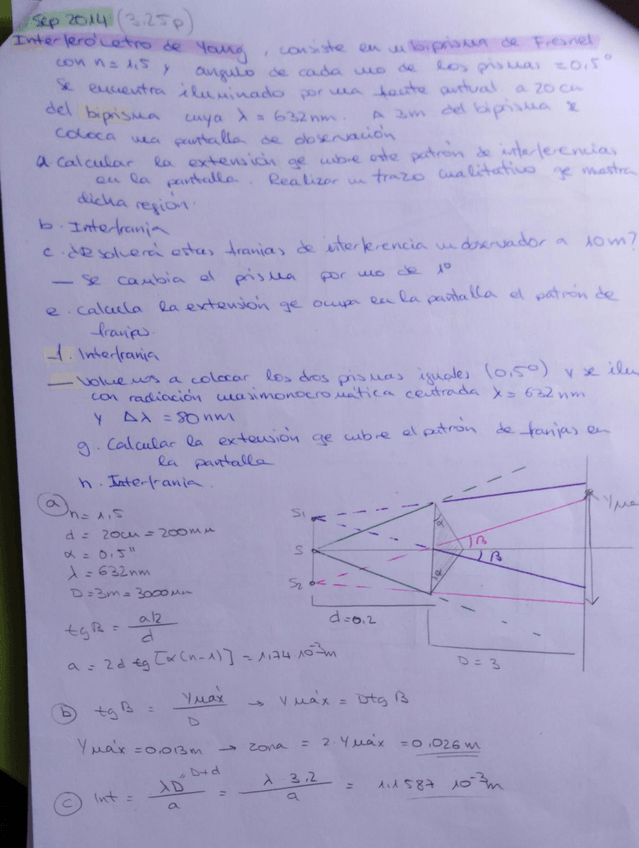 Sep 2014 (3.25p)
Interferómetro de Young, consiste en un biprisma de Fresnel
con n = 1,5 y ángulo de cada uno de los prismas = 0,5°
Se encuentra iluminado por una fuente puntual a 20 cm
del biprisma cuya λ = 632nm. A 3m del biprisma se
coloca una pantalla de observación
a. Calcular la extensión qe cubre este patrón de interferencias
en la pantalla. Realizar un trazo cualitativo qe muestra
dicha región.
b. Interfranja
c. ¿Resolverá estas franjas de interferencia un observador a 10m?
— Se cambia el prisma por uno de 1°
e. Calcula la extensión qe ocupa en la pantalla el patrón de
franjas
f. Interfranja
— Volvemos a colocar los dos prismas iguales (0,5°) y se ilu
con radiación cuasimonocromática centrada λ = 632 nm
y Δλ = 80 nm
g. Calcular la extensión qe cubre el patrón de franjas en
la pantalla
h. Interfranja.
a
n = 1,5
d = 20cm = 200mm
α = 0,5"
λ = 632nm
D = 3m = 3000mm
tg β = a/2 / d
a = 2d tg [α(n-1)] = 1,74 10⁻³m
S1
S
S2
α
α
β
β
Ymá
d = 0,2
D = 3
b tg β = Ymáx / D → Ymáx = D tg β
Ymáx = 0,013m → zona = 2·Ymáx = 0,026m
c Int = λD / a = λ 3,2 / a = 1,1587 10⁻³m
D+d